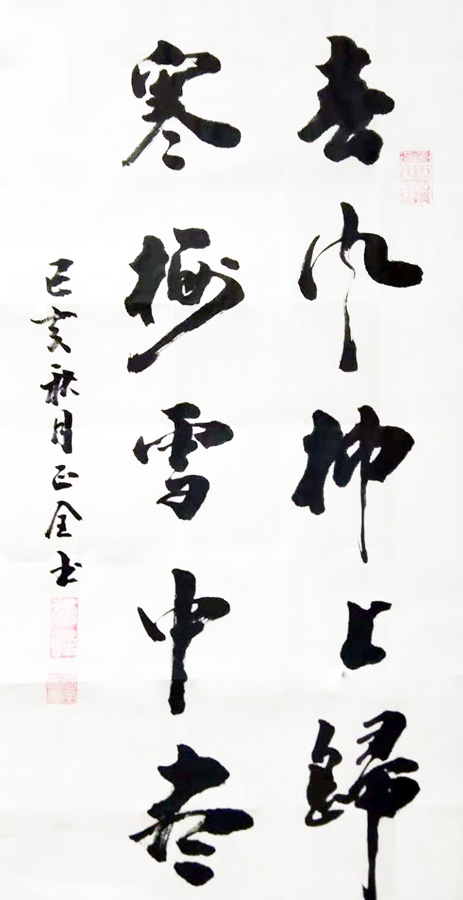 春风柳上歸
寒梅雪中尽
己亥秋月正全书